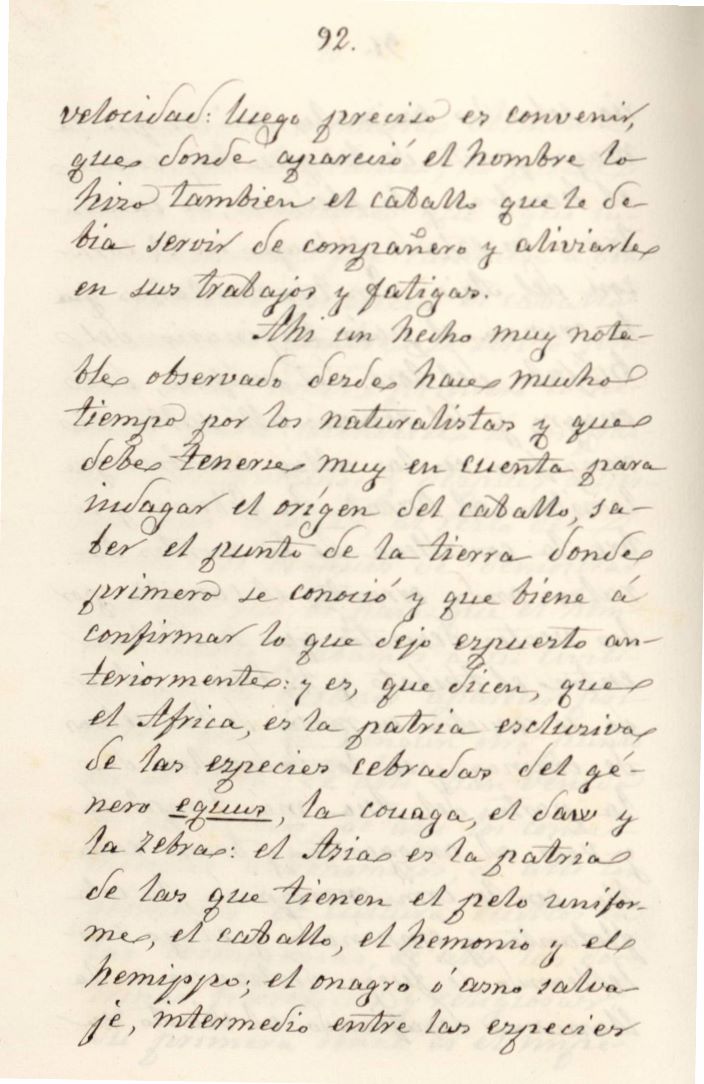 92.
velocidad: luego preciso es convenir,
que donde apareció el hombre lo
hizo tambien el caballo que le de-
bia servir de compañero y aliviarle
en sus trabajos y fatigas.
Ahi un hecho muy nota-
ble observado desde hace mucho
tiempo por los naturalistas y que
debe tenerse muy en cuenta para
indagar el orígen del caballo, sa-
ber el punto de la tierra donde
primero se conoció y que biene á
confirmar lo que dejo espuesto an-
teriormente: y es, que dicen, que
el Africa, es la patria esclusiva
de las especies cebradas del gé-
nero equus, la couaga, el daw y
la zebra: el Asia es la patria
de las que tienen el pelo unifor-
me, el caballo, el hemonio y el
hemippo; el onagro ó asno salva-
je, intermedio entre las especies